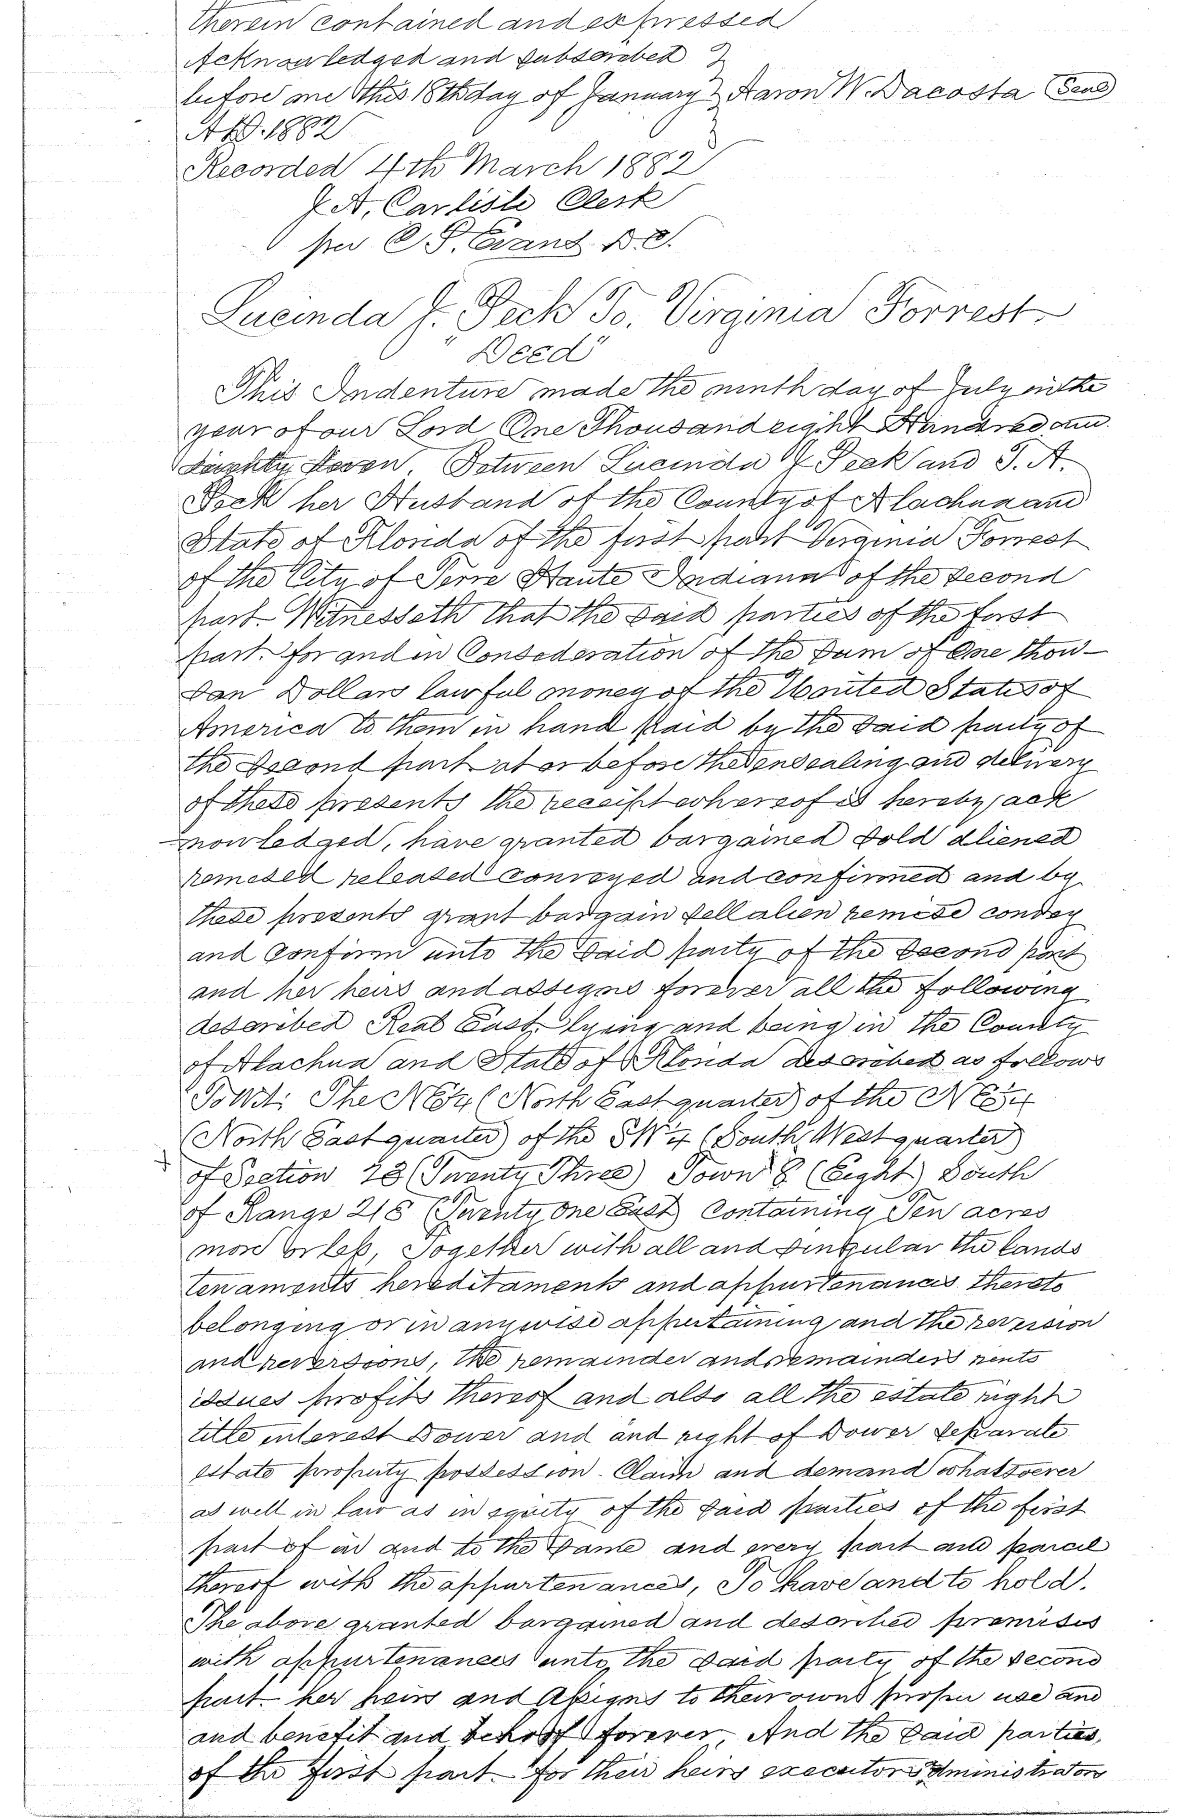 therein contained and expressed
Acknowledged and subscribed }
before me this 18th day of January } Aaron W. Dacosta (Seal)
A.D. 1882 }
Recorded 4th March 1882
J. A. Carlisle Clerk
per C. P. Evans D.C.
Lucinda J. Peck To. Virginia Forrest.
"Deed"
This Indenture made the ninth day of July in the
year of our Lord One Thousand eight Hundred and
Eighty Seven. Between Lucinda J Peck and T. A.
Peck her Husband of the County of Alachua and
State of Florida of the first part Virginia Forrest
of the City of Terre Haute Indiana of the second
part. Witnesseth that the said parties of the first
part. for and in Consederation of the Sum of One thou-
san Dollars lawful money of the United States of
America to them in hand paid by the said party of
the second part at or before the ensealing and delivery
of these presents the receipt whereof is hereby ack
nowledged, have granted bargained sold aliened
remesed released conveyed and confirmed and by
these presents grant bargain sell alien remise convey
and confirm unto the said party of the second part
and her heirs and assigns forever all the following
described Real East. lying and being in the County
of Alachua and State of Florida described as follows
To Wit: The NE¼ (North East quarter) of the NE¼
(North East quarter) of the SW¼ (South West quarter)
of Section 23 (Twenty Three) Town 8 (Eight) South
of Range 21E (Twenty One East) Containing Ten acres
more or less, Together with all and singular the lands
tenaments hereditaments and appurtenances thereto
belonging or in anywise appertaining and the revision
and reversions, the remainder and remainders rents
issues profits thereof and also all the estate right
title interest Dower and and right of Dower separate
estate property possession. Claim and demand whatsoever
as well in law as in equity of the said parties of the first
part of in and to the same and every part and parcel
thereof with the appurtenances, To have and to hold.
The above granted bargained and described premises
with appurtenances unto the said party of the second
part. her heirs and Assigns to their own proper use and
and benefit and behoof forever, And the said parties,
of the first part. for their heirs executors administrators